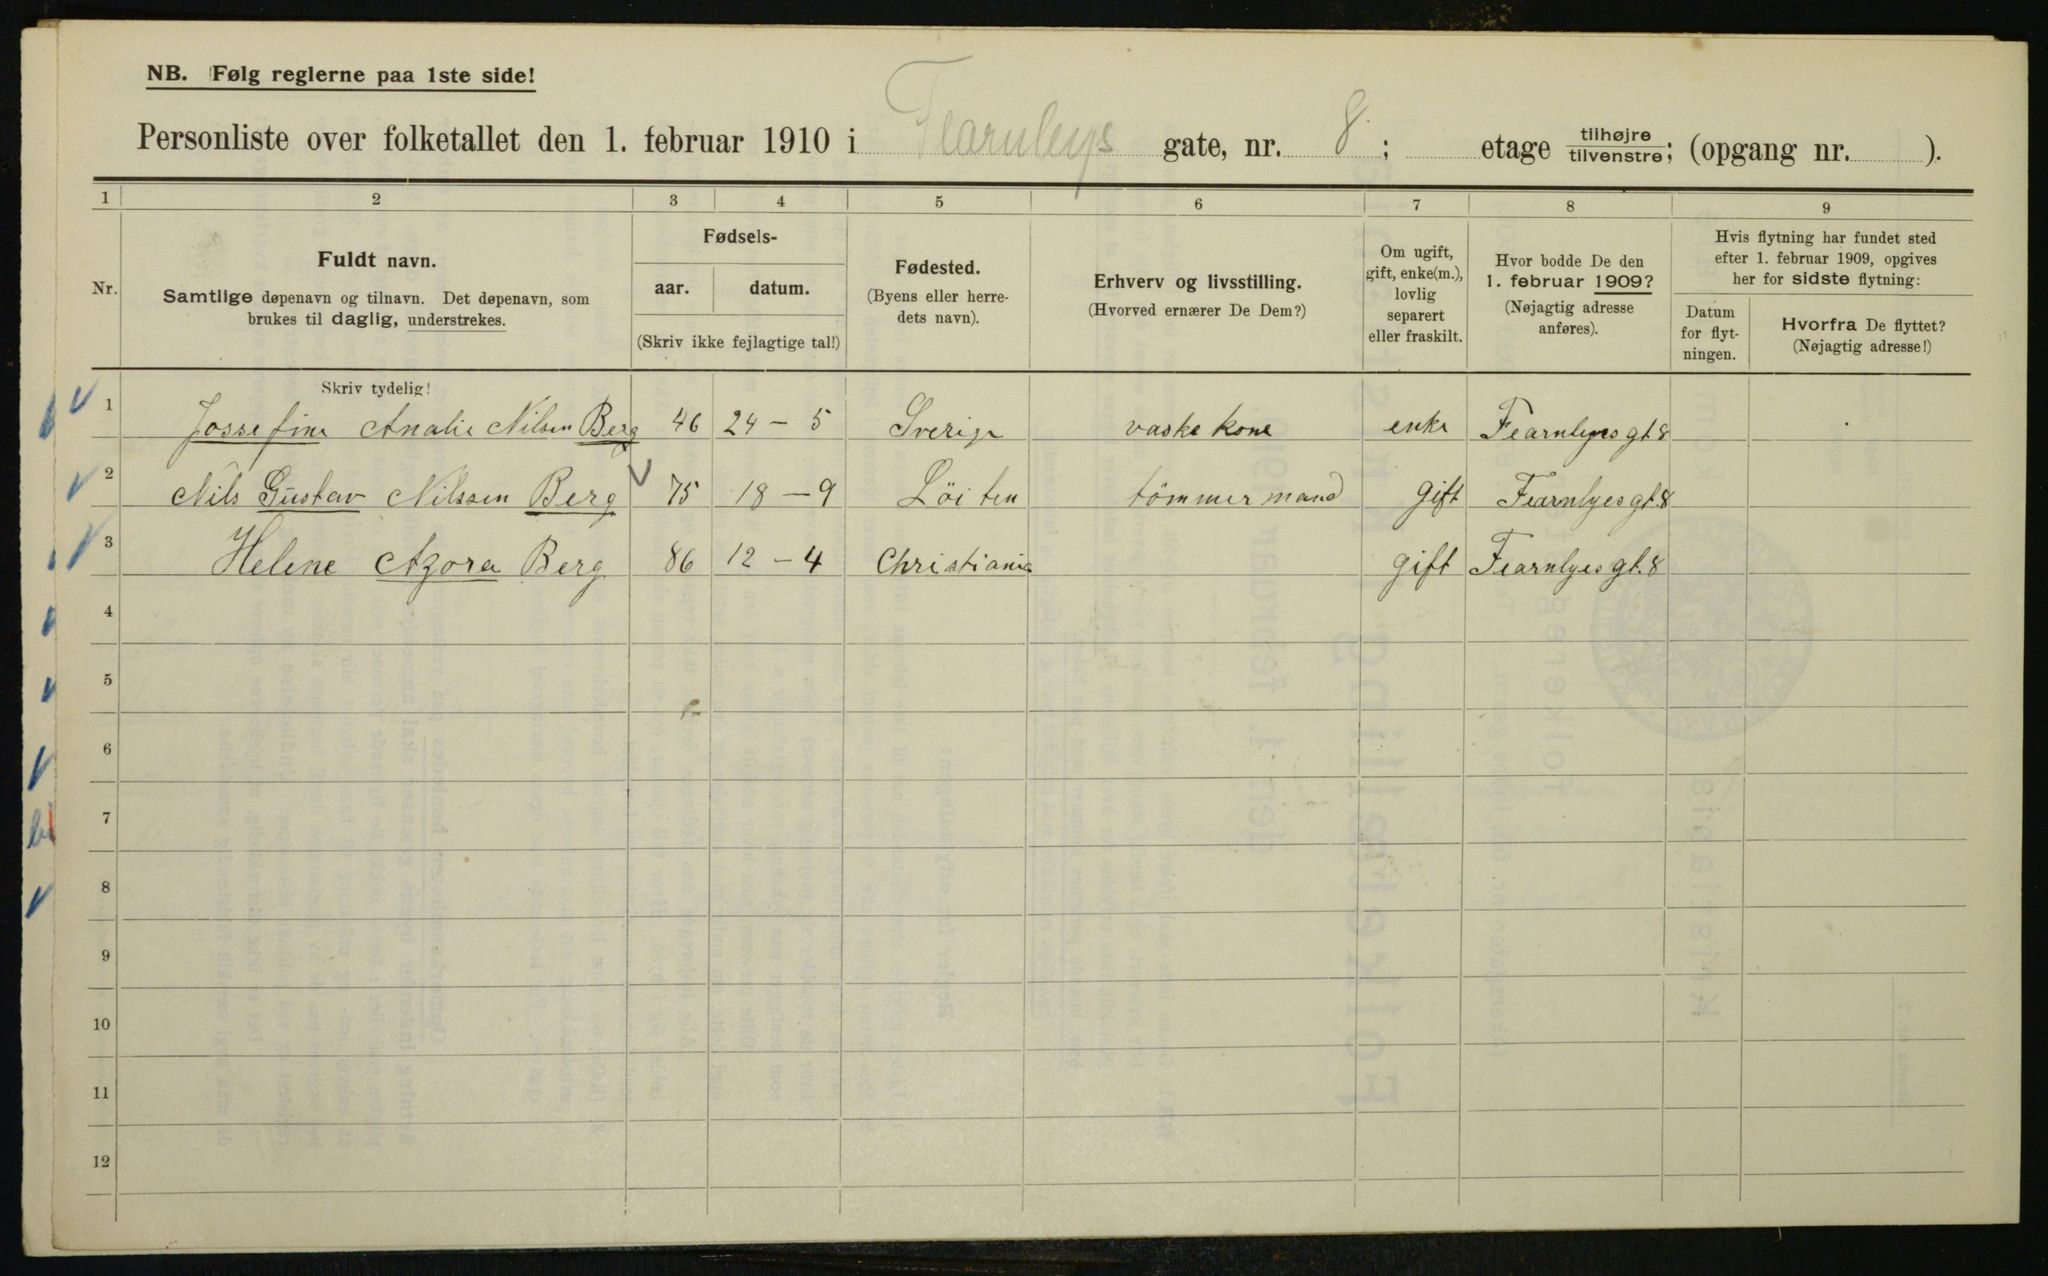 NB. Følg reglerne paa 1ste side!
Personliste over folketallet den 1. februar 1910 i Fearnleys gate, nr. 8; etage tilhøjre tilvenstre; (opgang nr. ).
1 2 3 4 5 6 7 8 9
Nr.
Fuldt navn.
Samtlige døpenavn og tilnavn. Det døpenavn, som
brukes til daglig, understrekes.
Fødsels-
aar. datum.
(Skriv ikke fejlagtige tal!)
Fødested.
(Byens eller herre-
dets navn).
Erhverv og livsstilling.
(Hvorved ernærer De Dem?)
Om ugift,
gift, enke(m.),
lovlig
separert
eller fraskilt.
Hvor bodde De den
1. februar 1909?
(Nøjagtig adresse
anføres).
Hvis flytning har fundet sted
efter 1. februar 1909, opgives
her for sidste flytning:
Datum
for flyt-
ningen.
Hvorfra De flyttet?
(Nøjagtig adresse!)
Skriv tydelig!
1 Jossefine Analie Nilsen Berg 46 24 - 5 Sverige vaskekone enke Fearnlyes gt. 8
2 Nils Gustav Nilssen Berg 75 18 - 9 Löiten tömmermand gift Fearnlyes gt. 8
3 Helene Azora Berg 86 12 - 4 Christiania gift Fearnlyes gt. 8
4
5
6
7
8
9
10
11
12